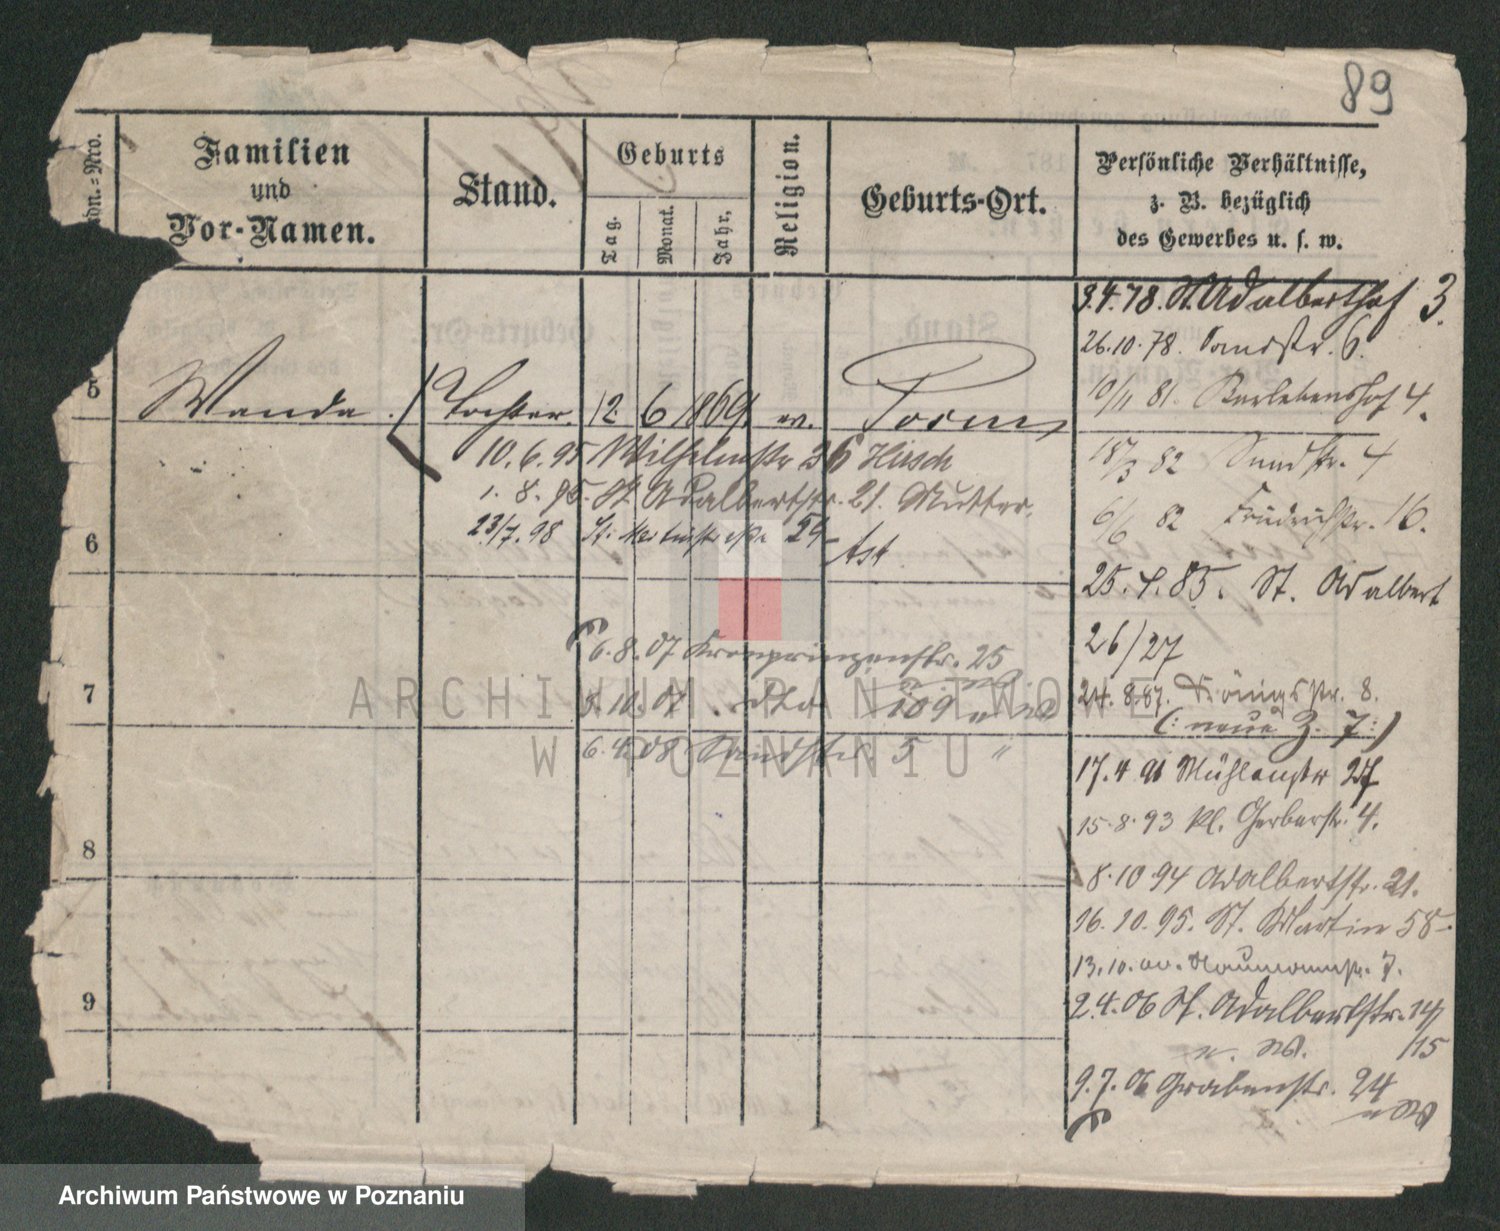 89
Nro.
Familien
und
Vor-Namen.
Stand.
Geburts
Tag.
Monat.
Jahr,
Religion.
Geburts-Ort.
Persönliche Verhältnisse,
z. B. bezüglich
des Gewerbes u. s. w.
5
Wanda
Tochter.
12 6 1869
ev.
Posen
10.6.95 Wilhelmstr 26 Hirsch
1.8.95. St. Adalbertstr. 21. Mutter.
23/7.98 St. Martinstraße 29
6
6.8.07 Kronprinzenstr. 25
7
8.10.07. dto 109
6.4.08 Sandstr. 5 "
8
9
9.4.78. St. Adalberthof 3.
26.10.78. Sandstr. 6.
10/11 81. Berlebenshof 4.
18/3 82 Sandstr. 4
6/6 82 Friedrichstr. 16.
25.4.85. St. Adalbert
26/27
24.8.87. Königsstr. 8.
(: neue Z. 7:)
17.4 91 Mühlenstr 27
15.8.93 kl. Gerberstr. 4.
8.10.94 Adalbertstr. 21.
16.10.95. St. Martin 58
13.10. Naumannstr. 7.
2.4.06 St. Adalbertstr. 14/
/15
9.7.06 Grabenstr. 24
ARCHIWUM PAŃSTWOWE
W POZNANIU
Archiwum Państwowe w Poznaniu